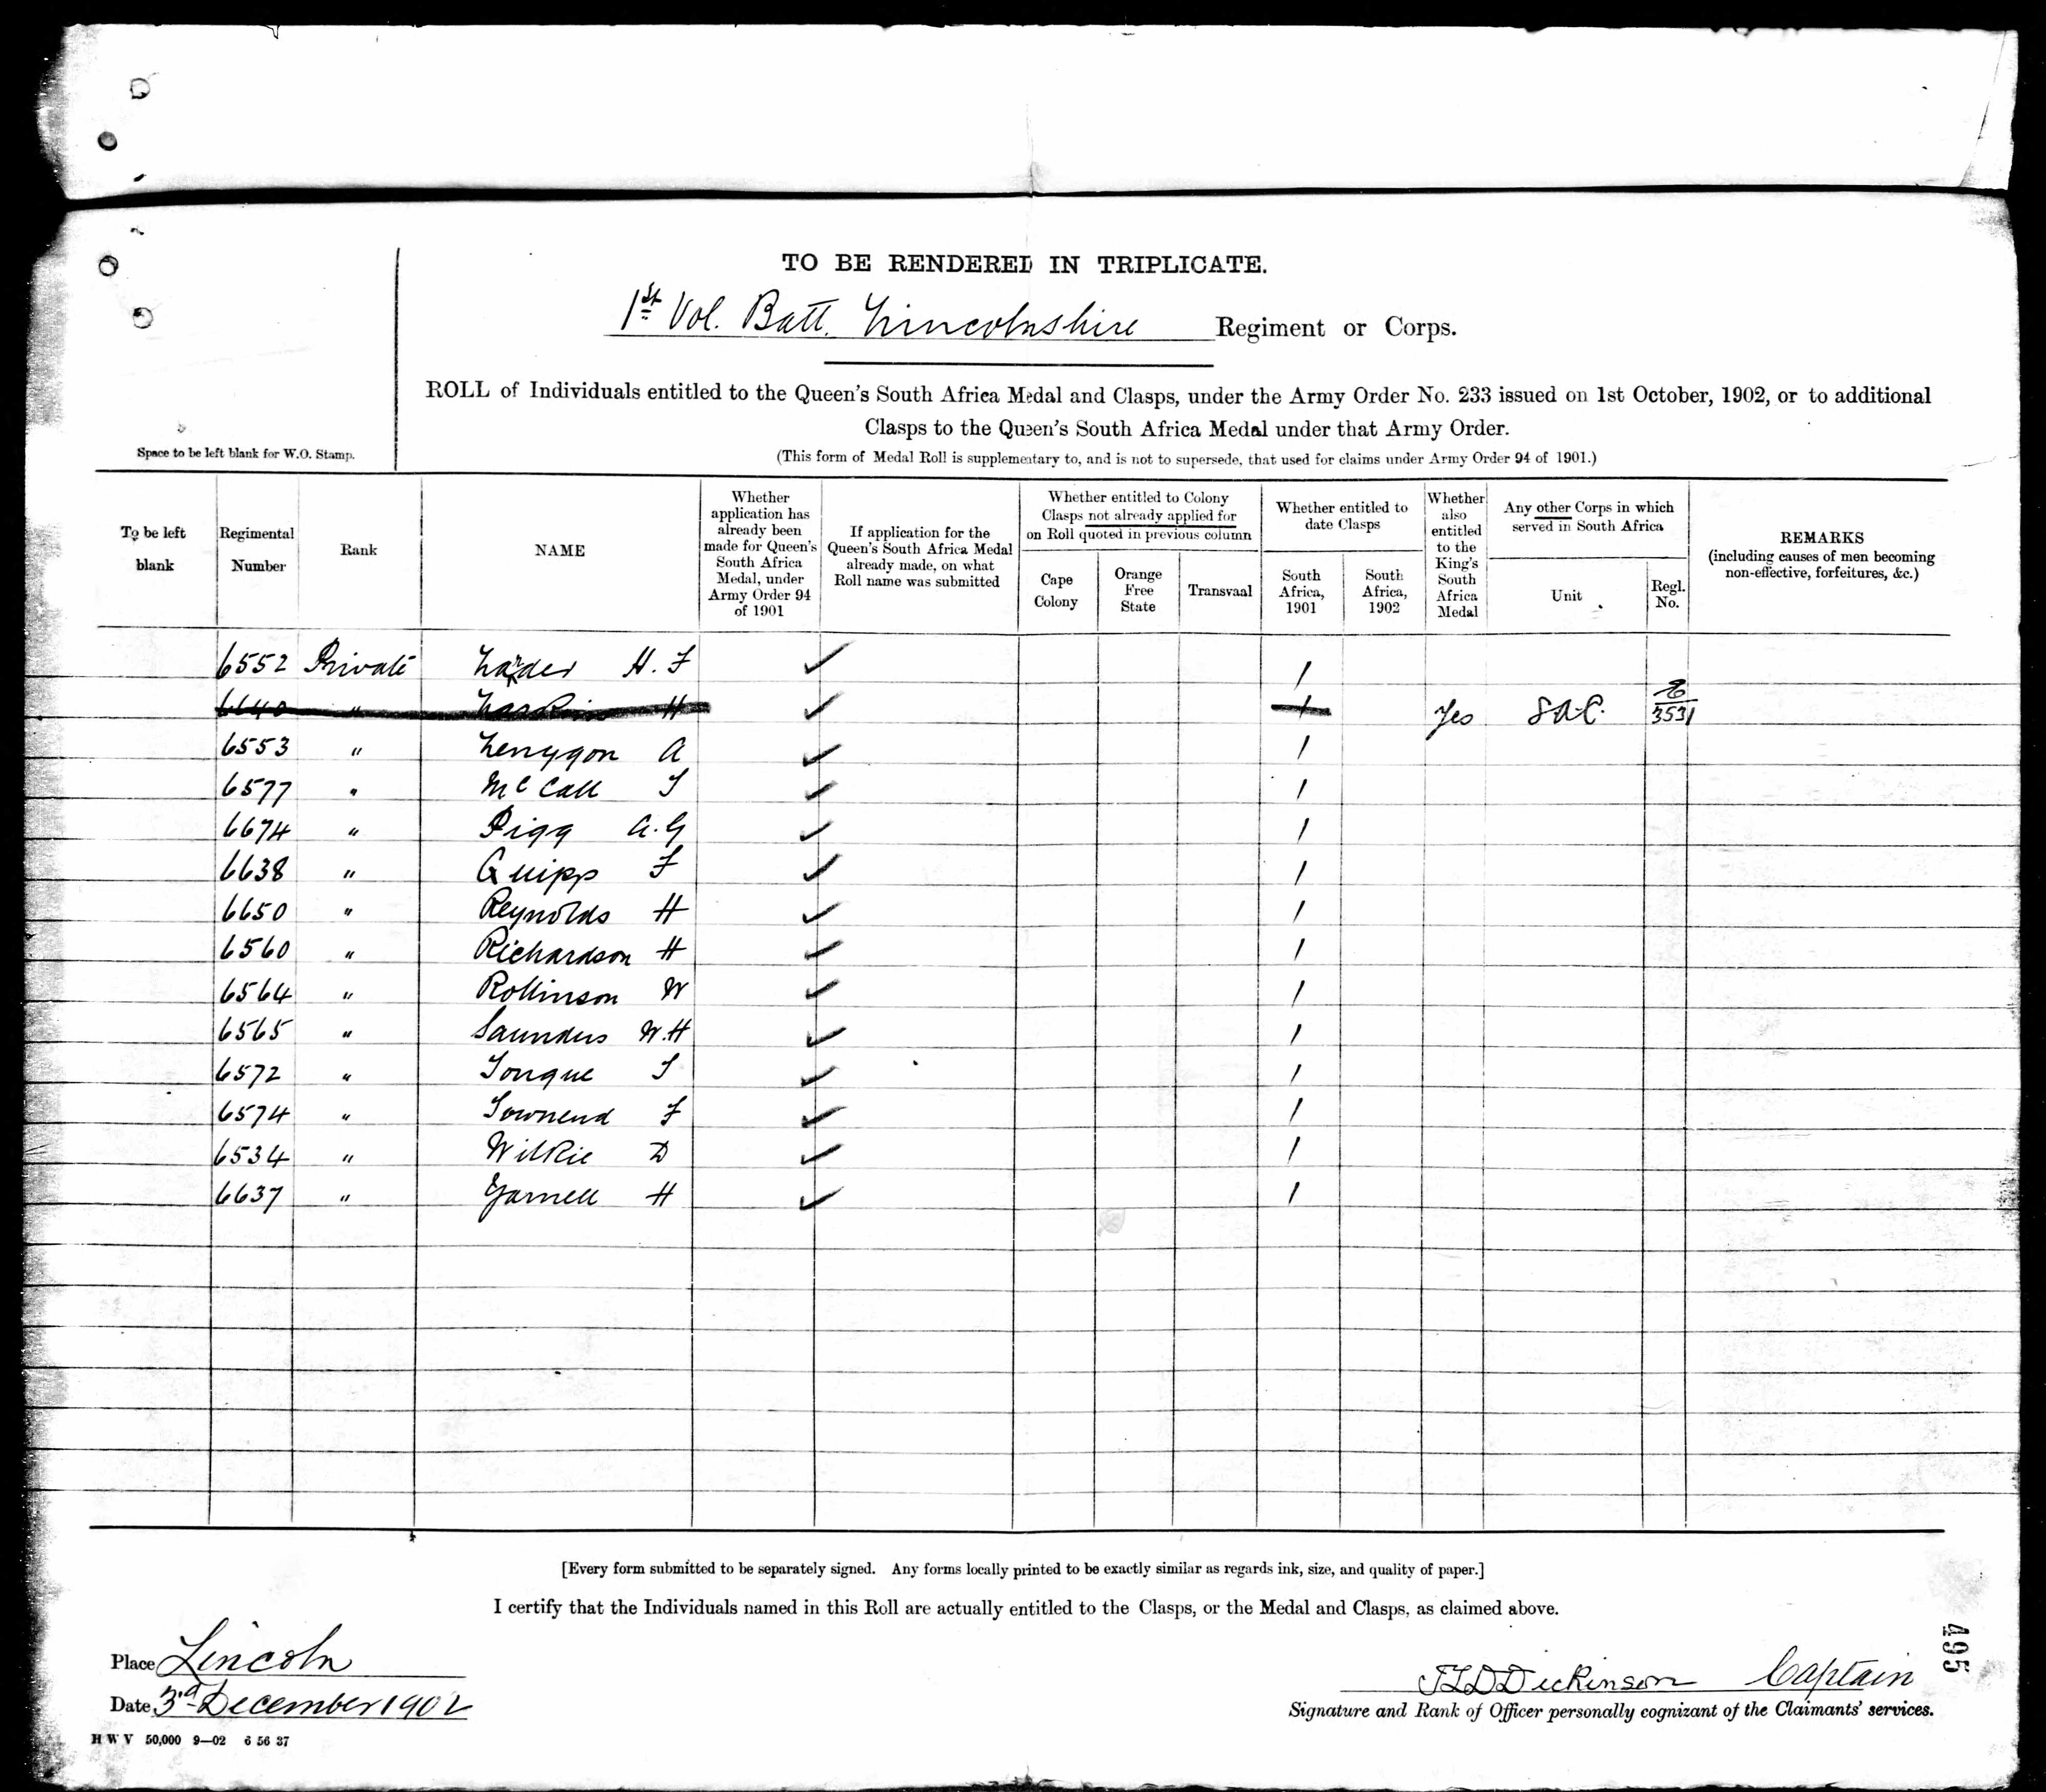 TO BE RENDERED IN TRIPLICATE.
1st Vol. Batt. Lincolnshire Regiment or Corps.
ROLL of Individuals entitled to the Queen's South Africa Medal and Clasps, under the Army Order No. 233 issued on 1st October, 1902, or to additional
Clasps to the Queen's South Africa Medal under that Army Order.
(This form of Medal Roll is supplementary to, and is not to supersede, that used for claims under Army Order 94 of 1901.)
Space to be left blank for W.O. Stamp.
To be left blank
Regimental Number
Rank
NAME
Whether application has already been made for Queen's South Africa Medal, under Army Order 94 of 1901
If application for the Queen's South Africa Medal already made, on what Roll name was submitted
Whether entitled to Colony Clasps not already applied for on Roll quoted in previous column
Cape Colony
Orange Free State
Transvaal
Whether entitled to date Clasps
South Africa, 1901
South Africa, 1902
Whether also entitled to the King's South Africa Medal
Any other Corps in which served in South Africa
Unit
Regl. No.
REMARKS
(including causes of men becoming non-effective, forfeitures, &c.)
6552 Private Larder H. F ✓ 1
6640 " H ✓ 1 Yes SAC. 3531
6553 " Lenygon A ✓ 1
6577 " McCall T ✓ 1
6674 " Pigg A.G ✓ 1
6638 " Quipp F ✓ 1
6650 " Reynolds H ✓ 1
6560 " Richardson H ✓ 1
6564 " Rollinson W ✓ 1
6565 " Saunders W.H ✓ 1
6572 " Tongue T ✓ 1
6574 " Townend F ✓ 1
6534 " Wilkie D ✓ 1
6637 " Yarnell H ✓ 1
[Every form submitted to be separately signed. Any forms locally printed to be exactly similar as regards ink, size, and quality of paper.]
I certify that the Individuals named in this Roll are actually entitled to the Clasps, or the Medal and Clasps, as claimed above.
Place Lincoln
Date 3rd December 1902
Dickinson Captain
Signature and Rank of Officer personally cognizant of the Claimants' services.
H W V 50,000 9—02 6 56 37
495